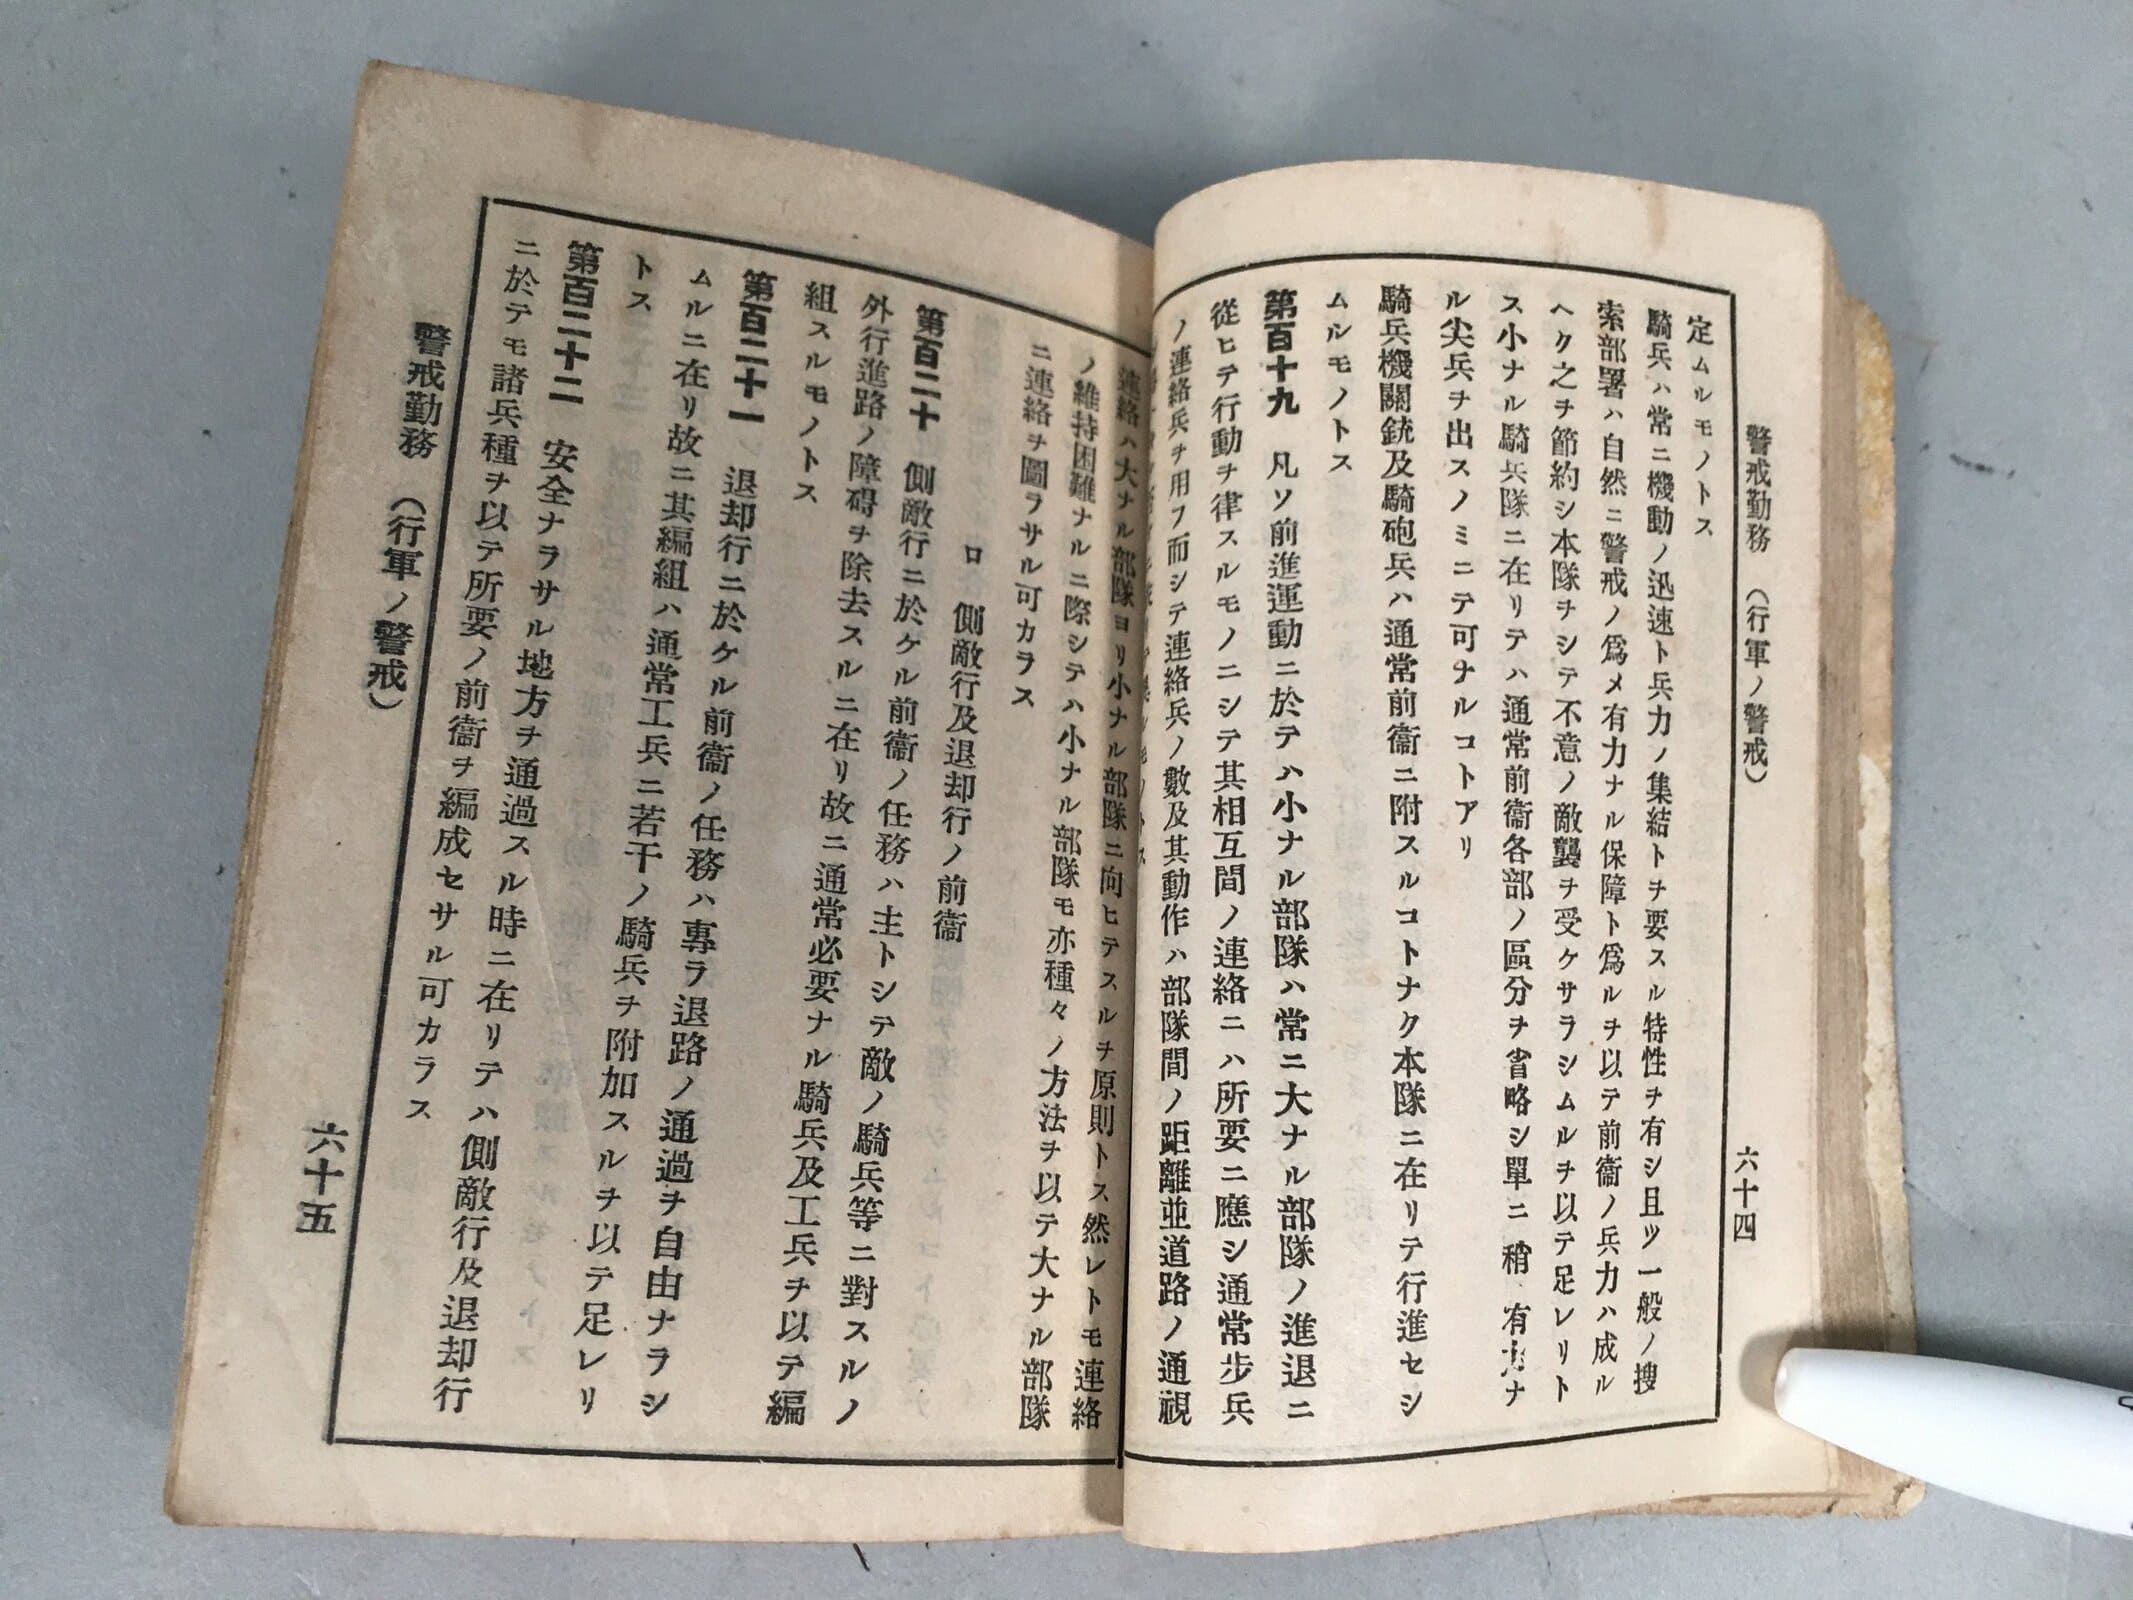 警戒勤務 (行軍ノ警戒) 六十四
定ムルモノトス
騎兵ハ常ニ機動ノ迅速ト兵力ノ集結トヲ要スル特性ヲ有シ且ツ一般ノ搜
索部署ハ自然ニ警戒ノ爲メ有力ナル保障ト爲ルヲ以テ前衞ノ兵力ハ成ル
ヘク之ヲ節約シ本隊ヲシテ不意ノ敵襲ヲ受ケサラシムルヲ以テ足レリト
ス小ナル騎兵隊ニ在リテハ通常前衞各部ノ區分ヲ省略シ單ニ稍有力ナ
ル尖兵ヲ出スノミニテ可ナルコトアリ
騎兵機關銃及騎砲兵ハ通常前衞ニ附スルコトナク本隊ニ在リテ行進セシ
ムルモノトス
第百十九 凡ソ前進運動ニ於テハ小ナル部隊ハ常ニ大ナル部隊ノ進退ニ
從ヒテ行動ヲ律スルモノニシテ其相互間ノ連絡ニハ所要ニ應シ通常步兵
ノ連絡兵ヲ用フ而シテ連絡兵ノ數及其動作ハ部隊間ノ距離並道路ノ通視
連絡ハ大ナル部隊ヨリ小ナル部隊ニ向ヒテスルヲ原則トス然レトモ連絡
ノ維持困難ナルニ際シテハ小ナル部隊モ亦種々ノ方法ヲ以テ大ナル部隊
ニ連絡ヲ圖ラサル可カラス
ロ 側敵行及退却行ノ前衞
第百二十 側敵行ニ於ケル前衞ノ任務ハ主トシテ敵ノ騎兵等ニ對スルノ
外行進路ノ障碍ヲ除去スルニ在リ故ニ通常必要ナル騎兵及工兵ヲ以テ編
組スルモノトス
第百二十一 退却行ニ於ケル前衞ノ任務ハ專ラ退路ノ通過ヲ自由ナラシ
ムルニ在リ故ニ其編組ハ通常工兵ニ若干ノ騎兵ヲ附加スルヲ以テ足レリ
トス
第百二十二 安全ナラサル地方ヲ通過スル時ニ在リテハ側敵行及退却行
ニ於テモ諸兵種ヲ以テ所要ノ前衞ヲ編成セサル可カラス
警戒勤務 (行軍ノ警戒) 六十五